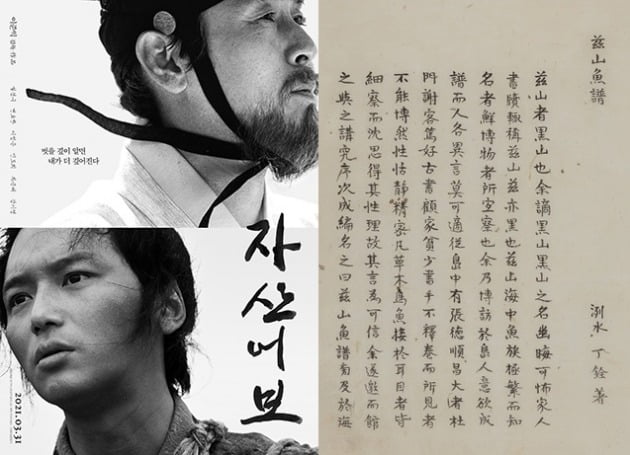 이준익 감독 작품
벗을 깊이 알면
내가 더 깊어진다
자산어보
2021.03.31
玆山魚譜
洌水 丁銓 著
玆山者黑山也余謫黑山黑山之名幽晦可怖家人
書牘輒稱玆山玆亦黑也玆山海中魚族極繁而知
名者鮮博物者所宜察也余乃博訪於島人意欲成
譜而人各異言莫可適從島中有張德順昌大者杜
門謝客篤好古書顧家貧少書手不釋卷而所見者
不能博然性恬靜精密凡草木鳥魚接於耳目者皆
細察而沈思得其性理故其言爲可信余遂邀而館
之與之講究序次成編名之曰玆山魚譜旁及於海